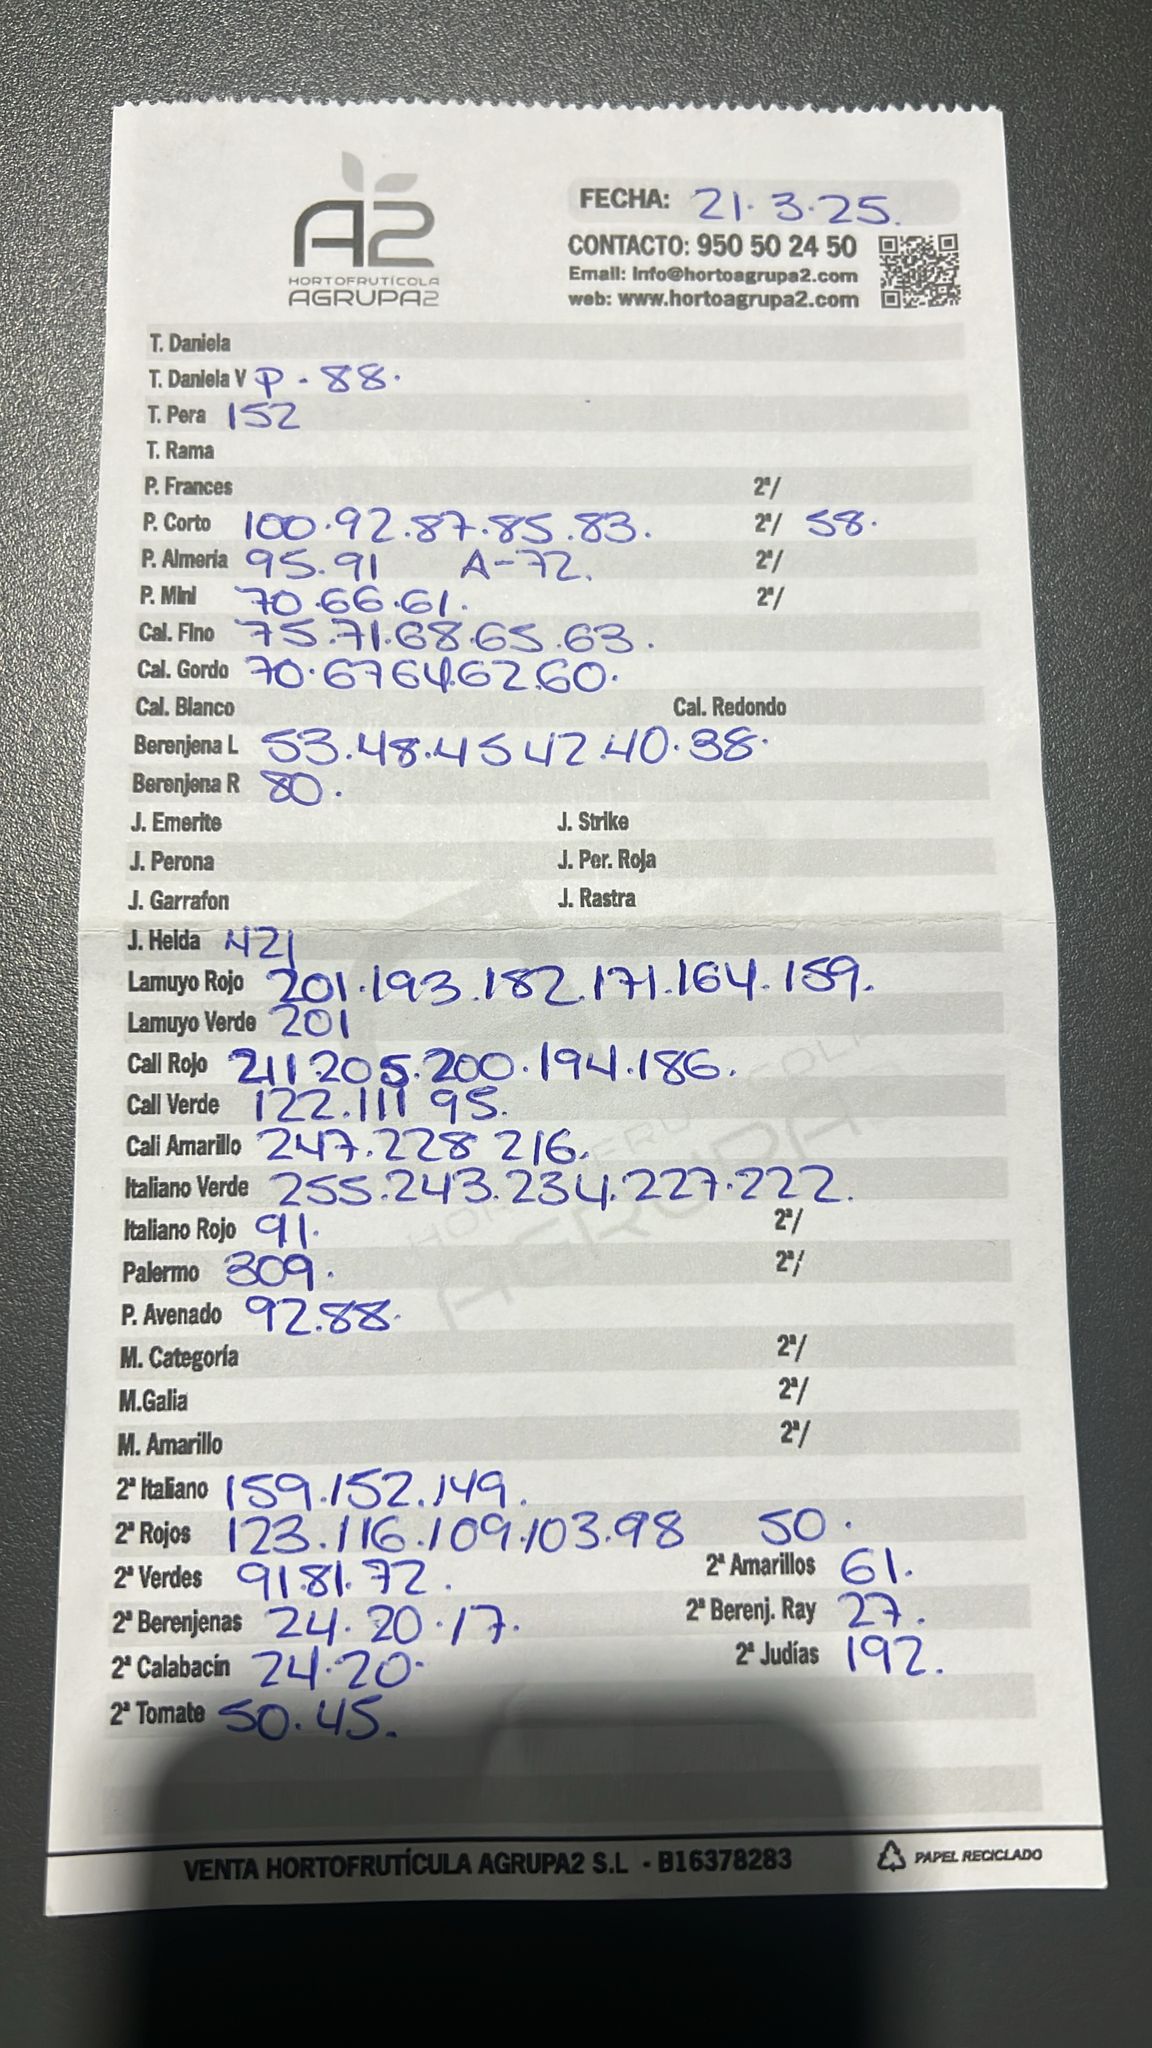 A2
HORTOFRUTÍCOLA
AGRUPA2
FECHA: 21.3.25.
CONTACTO: 950 50 24 50
Email: Info@hortoagrupa2.com
web: www.hortoagrupa2.com
T. Daniela
T. Daniela V P - 88.
T. Pera 152
T. Rama
P. Frances 2ª/
P. Corto 100.92.87.85.83. 2ª/ 58.
P. Almería 95.91 A-72. 2ª/
P. Mini 70.66.61. 2ª/
Cal. Fino 75.71.68.65.63.
Cal. Gordo 70.67 64.62.60.
Cal. Blanco Cal. Redondo
Berenjena L 53.48.45 42.40.38.
Berenjena R 80.
J. Emerite J. Strike
J. Perona J. Per. Roja
J. Garrafon J. Rastra
J. Helda 421
Lamuyo Rojo 201.193.182.171.164.159.
Lamuyo Verde 201
Cali Rojo 211 205.200.194.186.
Cali Verde 122.111 95.
Cali Amarillo 247.228 216.
Italiano Verde 255.243.234.227.222.
Italiano Rojo 91. 2ª/
Palermo 309. 2ª/
P. Avenado 92.88.
M. Categoría 2ª/
M.Galia 2ª/
M. Amarillo 2ª/
2ª Italiano 159.152.149.
2ª Rojos 123.116.109.103.98 50.
2ª Verdes 91.81.72. 2ª Amarillos 61.
2ª Berenjenas 24.20.17. 2ª Berenj. Ray 27.
2ª Calabacín 24.20. 2ª Judías 192.
2ª Tomate 50.45.
VENTA HORTOFRUTÍCULA AGRUPA2 S.L - B16378283 PAPEL RECICLADO